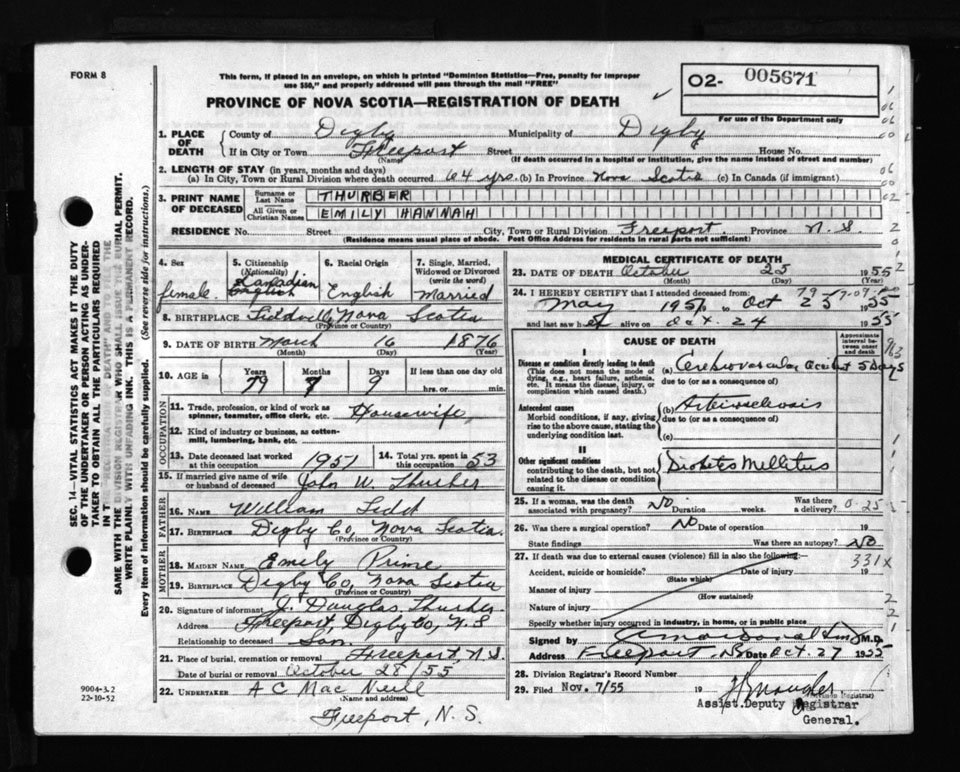 FORM 8
This form, if placed in an envelope, on which is printed "Dominion Statistics—Free, penalty for improper
use $50," and properly addressed will pass through the mail "FREE"
PROVINCE OF NOVA SCOTIA—REGISTRATION OF DEATH
O2- 005671
For use of the Department only
SEC. 14—VITAL STATISTICS ACT MAKES IT THE DUTY
OF THE UNDERTAKER OR PERSON ACTING AS UNDER-
TAKER TO OBTAIN ALL THE PARTICULARS REQUIRED
SAME WITH THE DIVISION REGISTRAR WHO SHALL ISSUE THE BURIAL PERMIT.
WRITE PLAINLY WITH UNFADING INK. THIS IS A PERMANENT RECORD.
Every item of information should be carefully supplied. (See reverse side for instructions.)
1. PLACE OF DEATH County of Digby Municipality of Digby
If in City or Town Freeport Street House No.
(Name) (If death occurred in a hospital or institution, give the name instead of street and number)
2. LENGTH OF STAY (in years, months and days)
(a) In City, Town or Rural Division where death occurred 64 yrs. (b) In Province Nova Scotia (c) In Canada (if immigrant)
3. PRINT NAME OF DECEASED Surname or Last Name THURBER
All Given or Christian Names EMILY HANNAH
RESIDENCE No. Street City, Town or Rural Division Freeport. Province N.S.
(Residence means usual place of abode. Post Office Address for residents in rural parts not sufficient)
4. Sex 5. Citizenship (Nationality) 6. Racial Origin 7. Single, Married, Widowed or Divorced (write the word)
female Canadian English English Married
8. BIRTHPLACE Nova Scotia
(Province or Country)
9. DATE OF BIRTH March 16 1876
(Month) (Day) (Year)
10. AGE in Years Months Days If less than one day
79 7 9 hrs. or min.
OCCUPATION
11. Trade, profession or kind of work as
spinner, teamster, office clerk, etc. Housewife
12. Kind of industry or business, as cotton-
mill, lumbering, bank, etc.
13. Date deceased last worked at this occupation 1951 14. Total yrs. spent in this occupation 53
15. If married give name of wife or husband of deceased John W. Thurber
FATHER
16. NAME William Tidd
17. BIRTHPLACE Digby Co, Nova Scotia.
(Province or Country)
MOTHER
18. MAIDEN NAME Emily Prime
19. BIRTHPLACE Digby Co, Nova Scotia
(Province or Country)
20. Signature of informant J. Douglas Thurber
Address Freeport, Digby Co, N.S
Relationship to deceased Son
21. Place of burial, cremation or removal Freeport N.S.
Date of burial or removal October 28/55
22. UNDERTAKER A C Mac Neill
(Name and address)
Freeport, N.S.
9004-3.2
22-10-52
MEDICAL CERTIFICATE OF DEATH
23. DATE OF DEATH October 25 1955
(Month) (Day)
24. I HEREBY CERTIFY that I attended deceased from:
May 1951 to Oct 1955
and last saw her alive on Oct. 24 1955
CAUSE OF DEATH
Approximate interval between onset and death
I
Disease or condition directly leading to death
(This does not mean the mode of dying, e.g., heart failure, asthenia, etc. It means the disease, injury, or complication which caused death.)
(a) Cerebrovascular accident 5 days
due to (or as a consequence of)
Antecedent causes
Morbid conditions, if any, giving rise to the above cause, stating the underlying condition last.
(b) Arteriosclerosis
due to (or as a consequence of)
(c)
II
Other significant conditions
contributing to the death, but not related to the disease or condition causing it.
Diabetes Mellitus
25. If a woman, was the death associated with pregnancy? No Duration weeks. Was there a delivery?
26. Was there a surgical operation? No Date of operation 19
State findings Was there an autopsy? No
27. If death was due to external causes (violence) fill in also the following:— 331X
Accident, suicide or homicide? Date of injury 19
(State which)
Manner of injury
(How sustained)
Nature of injury
Specify whether injury occurred in industry, in home, or in public place
Signed by M.D.
Address Freeport, N.S Date Oct. 27 1955
28. Division Registrar's Record Number
29. Filed Nov. 7/55 19
Assist. Deputy Registrar
General.